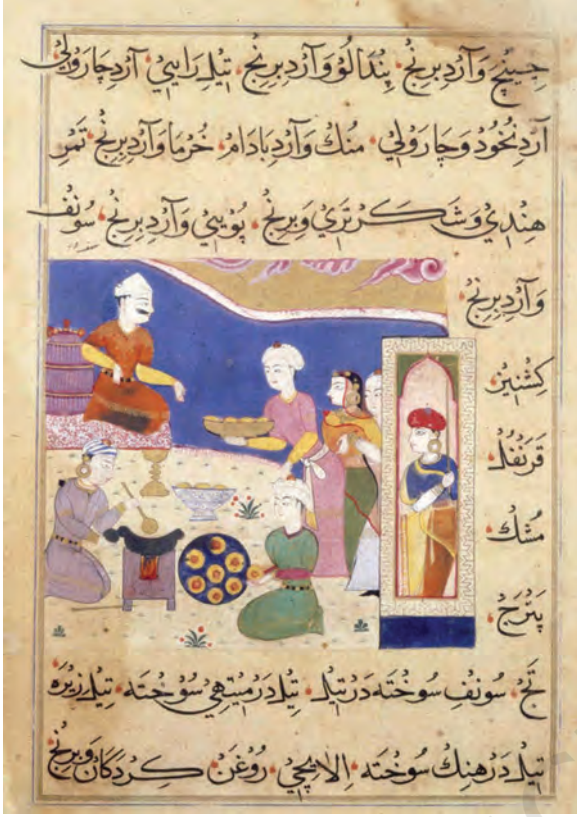 چینچ وَآردِبرِنج پِندَالُووَآردِبرِنج تیل رَاییِ آردِچارَولیِ
آردِنخُودوَچَارَولیِ مُنک وَآردِبَادَام خُرمَاوَآردِبرِنج تَمرِ
هِندِی وَشَکَرتَرِی وَبرِنج پُوییِ وَآردِبرِنج سُونف
وَآردِبرِنج
کِشنِیز
قَرَنفُل
مُشک
پَترَج
تَج سُونفِ سُوختَه دَرتیل تیل دَرمیتهی سُوختَه تیل زِیرَه
تیل دَرهِنک سُوختَه اِلَایچِی رُوغَن کِردَکَان وَبرِنج